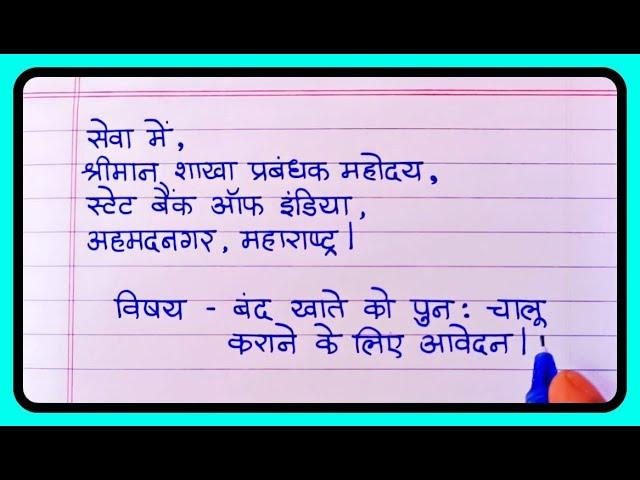 सेवा में,
श्रीमान शाखा प्रबंधक महोदय,
स्टेट बैंक ऑफ इंडिया,
अहमदनगर, महाराष्ट्र।
विषय - बंद खाते को पुन: चालू
कराने के लिए आवेदन।